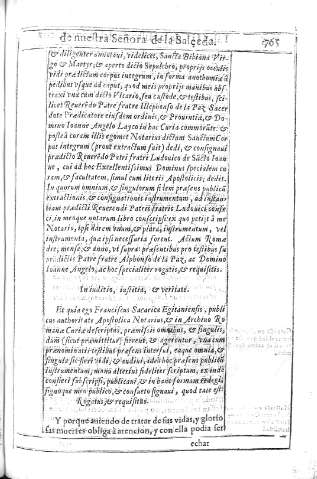 de nuestra Señora de la Salceda. 765
& diligenter amotoui, videlicet, Sancta Bibiana Vir-
go & Martyr, & aperto dicto Sepulchro, proprijs oculis
vidi prædictum corpus integrum, in forma anathomia à
pedibus vsque ad caput, quod meis proprijs manibus abs-
traxi vna cum dicto Vicario, seu custode, & testibus, sci-
licet Reuerendo Patre fratre Illephonso de la Paz Sacer
dote Prædicatore eiusdem ordinis, & Prouentia, & Do-
mino Ioanne Angelo Romanæ Curiæ commorate: &
postea coram illis egomet Notarius dictam Sanctum Cor-
pus integrum (prout extractum fuit) dedi, & consignaui
prædicto Reuerēdo Patri fratri Ludouico de Sācto Ioan-
ne, cui ad hoc Excellentissimus Dominus specialem co
rem, & facultatem, simul cum litteris Apostolicis, dedit.
In quorum omnium, & singulorum fidem præsens publicū
extractionis, & consignationis instrumentum, ad instan-
tiam prædicti Reuerendi Patris fratris Ludouici conse-
ci, in meoque notarum libro conscripsi: ex quo petijt à me
Notario, ipsi dare vnum, & plura, instrumentum, vel
instrumenta, quæ ipsi necessaria forent. Actum Romæ
die, mense, & anno, vt supra: præsentibus pro testibus su
prædictis Patre fratre Alphonso de la Paz, ac Domino
Ioanne Angelo, ad hoc specialiter rogatis, & requisitis.
In iuditio, iustitia, & veritate.
Et quia ego Franciscus Sacarico Egitaniensis, publi
cus authoritate Apostolica Notarius, & in Archiuo Ro
manæ Curiæ descriptus, præmissis omnibus, & singulis,
dum (sicut præmittitur) fierent, & agerentur, vna cum
prænominatis testibus præsens interfui, eaque omnia, &
singula sic fieri vidi, & audiui, ideò hoc præsens publicū
instrumentum, manu alterius fideliter scriptum, exindè
confeci subscripsi, publicaui, & in hanc formam redegi
signoque meo publico, & consueto signaui, quod tale est:
Rogatus, & requisitus.
Y porque auiendo de tratar de sus vidas, y glorio
sas muertes obliga à atencion, y con ella podia ser
echar